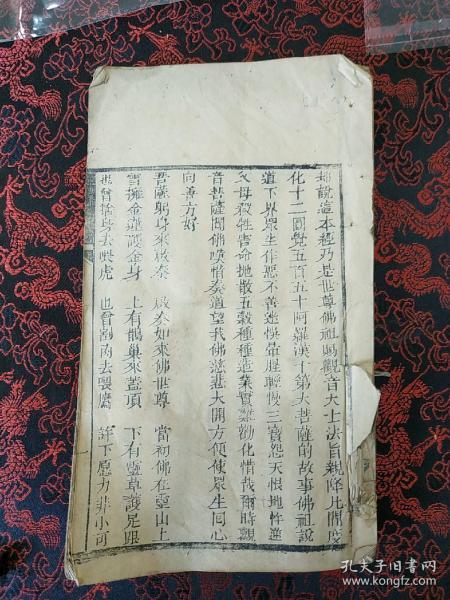 却說這本經乃是世尊佛祖賜觀音大士法旨親降凡間度
化十二圓覺五百五十阿羅漢十弟大菩薩的故事佛祖說
道下界眾生作惡不善迷快葷腥輕慢三寶怨天恨地忤逆
父母殺牲害命拋散五穀種種造業實難勸化惜哉爾時觀
音菩薩聞佛嘆惜奏道望我佛慈悲大開方便使眾生同心
向善方好
菩薩躬身來啟奏　啟奏如來佛世尊　當初佛在靈山上
雪擁金蓮護金身　上有鵲巢來蓋頂　下有靈草護足跟
也曾捨身去喂虎　也曾割肉去喂鷹　許下愿力非小可
孔夫子旧书网
www.kongfz.com